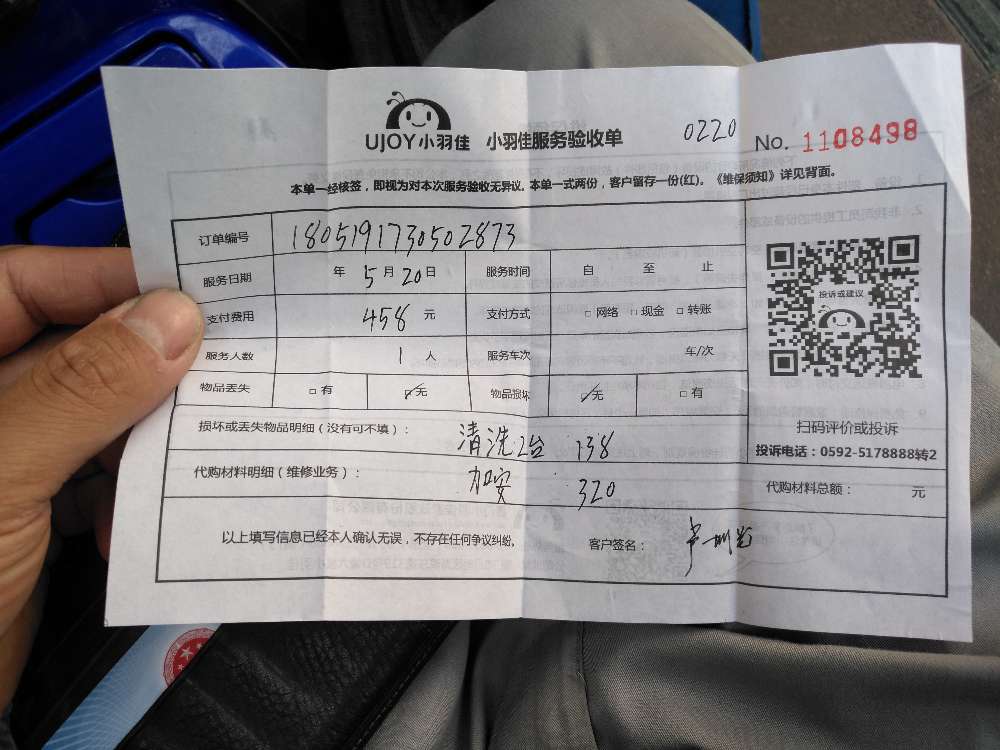 UJOY小羽佳 小羽佳服务验收单 0220 No. 1108498
本单一经核签，即视为对本次服务验收无异议。本单一式两份，客户留存一份(红)。《维保须知》详见背面。
订单编号 1805191730502873
服务日期 年 5 月 20 日 服务时间 自 至 止
支付费用 458 元 支付方式 □ 网络 □ 现金 □ 转账
服务人数 1 人 服务车次 车/次
物品丢失 □ 有 ☑ 无 物品损坏 ☑ 无 □ 有
投诉或建议
扫码评价或投诉
投诉电话：0592-5178888转2
损坏或丢失物品明细（没有可不填）： 清洗2台 138
代购材料明细（维修业务）： 加安 320 代购材料总额： 元
以上填写信息已经本人确认无误，不存在任何争议纠纷。 客户签名：